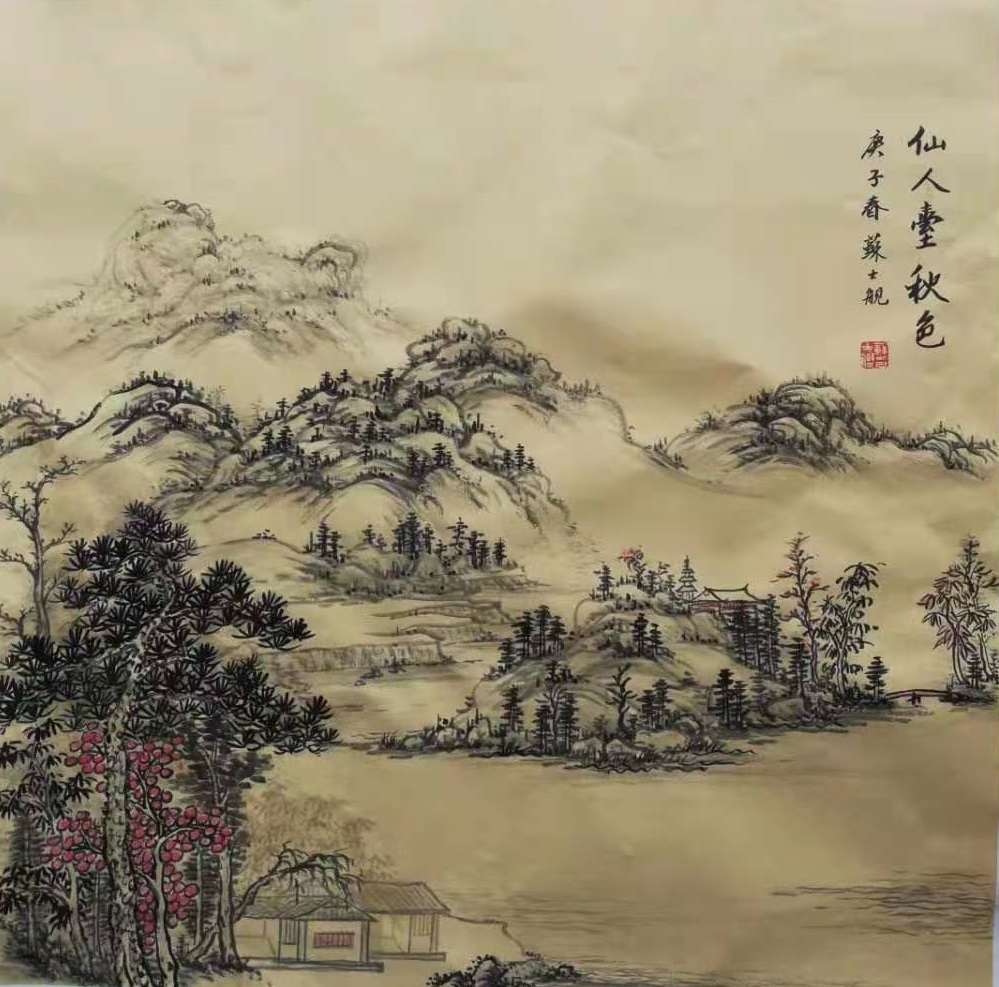 仙人臺秋色
庚子春 蘇士舰